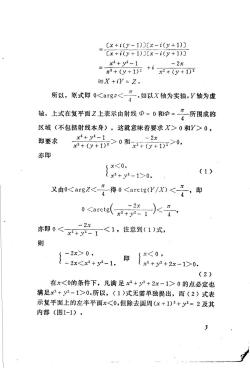 = [x+i(y-1)][x-i(y+1)] / [x+i(y+1)][x-i(y+1)]
= x²+y²-1 / x²+(y+1)² + i -2x / x²+(y+1)²
≡X+iY=Z。
所以,原式即0<argz<π/4,如以X轴为实轴,Y轴为虚
轴,上式在复平面Z上表示由射线Φ=0和Φ=π/4所围成的
区域(不包括射线本身)。这就意味着要求X>0和Y>0,
即要求 x²+y²-1 / x²+(y+1)² >0和 -2x / x²+(y+1)² >0,
亦即
{ x<0, x²+y²-1>0. (1)
又由0<argZ<π/4得0<arctg(Y/X)<π/4,即
0<arctg(-2x / x²+y²-1)<π/4,
亦即0< -2x / x²+y²-1 <1,注意到(1)式,
则
{ -2x>0, -2x<x²+y²-1, 即 { x<0, x²+y²+2x-1>0.
(2)
在x<0的条件下,凡满足x²+y²+2x-1>0的点必定也
满足x²+y²-1>0,所以,(1)式无需单独提出,而(2)式表
示复平面上的左半平面x<0,但除去圆周(x+1)²+y²=2及其
内部(图1-1)。
3